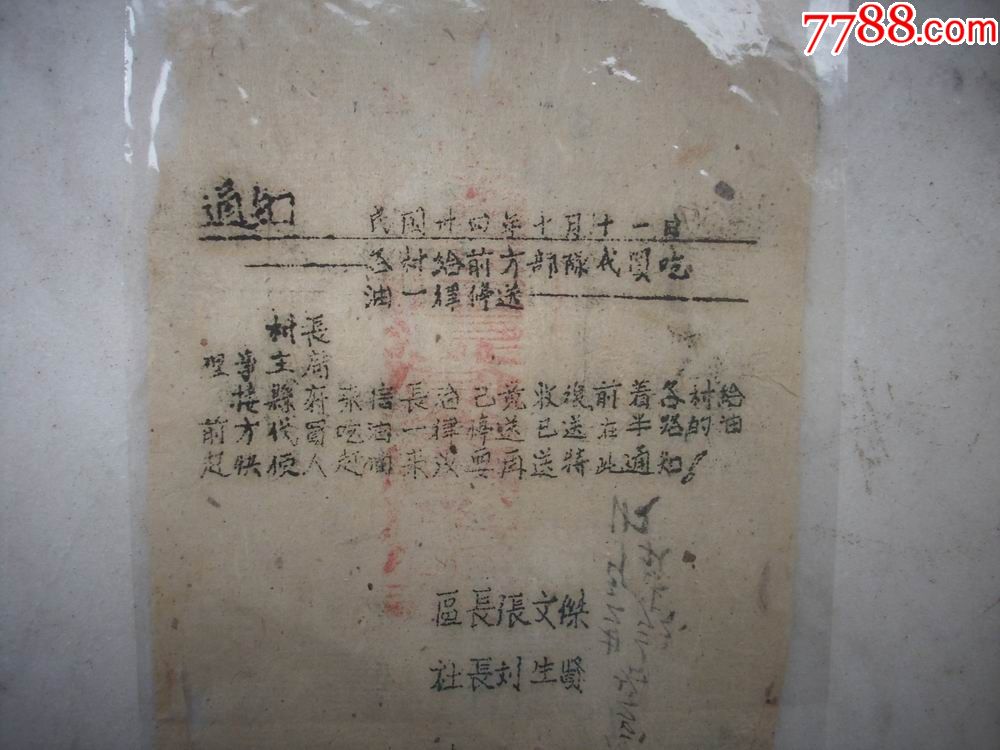 7788.com
通知
民国廿四年十月十一日
各村給前方部隊代買吃
油一律停送
村長
理事主席
接縣府來信長治已竟收復前着各村給
前方代買吃油一律停送已送在半路的油
赶快使人赶回來沒要再送特此通知!
區長張文傑
社長刘生賢